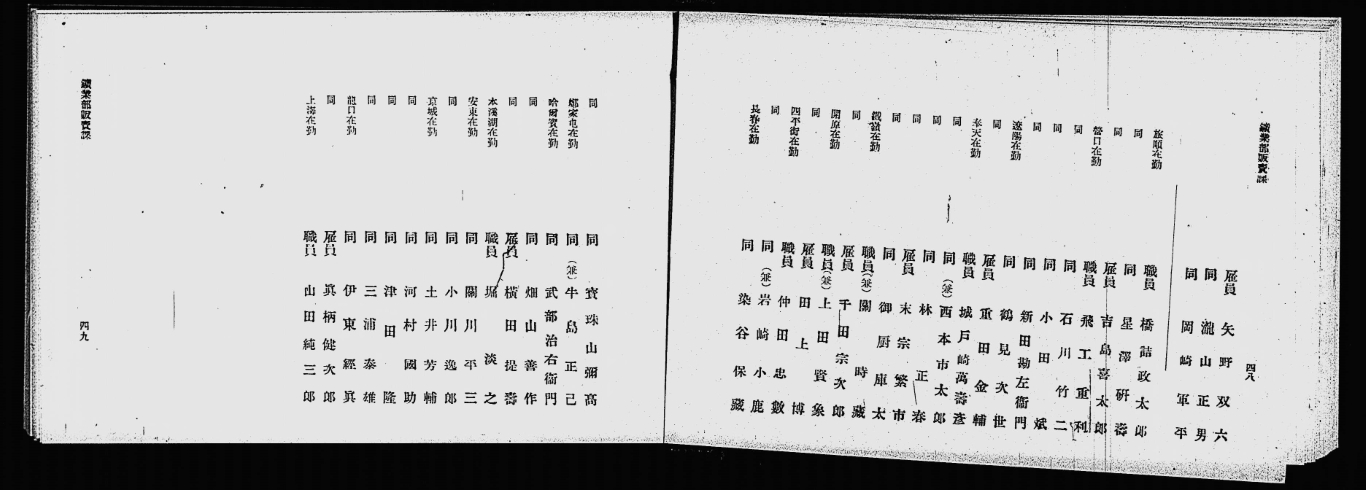 鑛業部販賣課
四八
雇員 矢野双六
同 瀧山正男
同 岡崎軍平
旅順在勤 職員 橋詰政太郎
同 同 星澤研壽
同 雇員 吉島喜太郎
營口在勤 職員 飛工重利
同 同 石川竹二
同 同 小田斌
同 同 新田勘左衞門
遼陽在勤 同 鶴見次世
同 雇員 重田金輔
奉天在勤 職員 城戸崎萬壽彦
同 同(兼) 西本市太郎
同 同 林正春
同 雇員 末宗繁市
同 同 御厨庫太
鐵嶺在勤 職員(兼) 關時藏
同 雇員 千田宗次郎
開原在勤 職員(兼) 上田賢象
同 雇員 田上博
四平街在勤 職員 仲田忠數
同 同(兼) 岩崎小鹿
長春在勤 同 染谷保藏
同 同 寳珠山彌高
鄭家屯在勤 同(兼) 牛島正己
哈爾賓在勤 同 武部治右衞門
同 同 畑山善作
同 雇員 横田提壽
本溪湖在勤 職員 堀淡之
安東在勤 同 關川平三
同 同 小川逸郎
京城在勤 同 土井芳輔
同 同 河村國助
同 同 津田隆
同 同 三浦泰雄
龍口在勤 同 伊東經眞
同 雇員 眞柄健次郎
上海在勤 職員 山田純三郎
鑛業部販賣課
四九